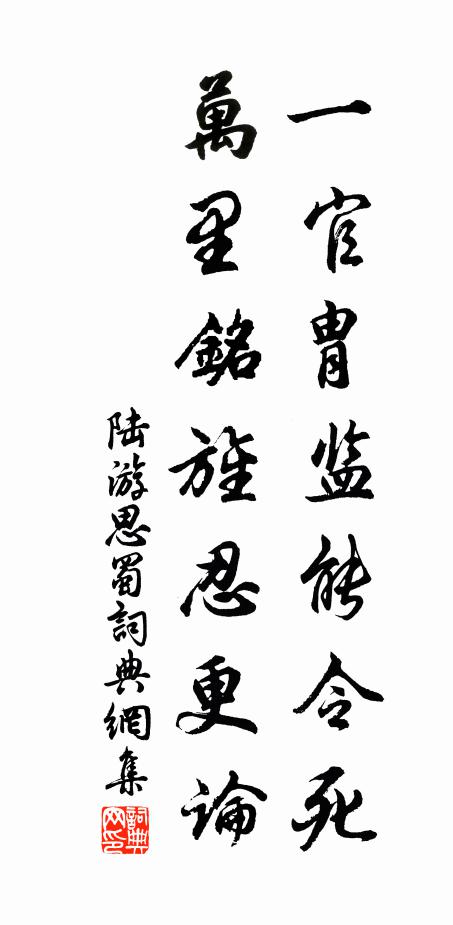 一官胄监能令死
萬里銘旌忍更論
陆游思蜀詞典網集
詞典网印